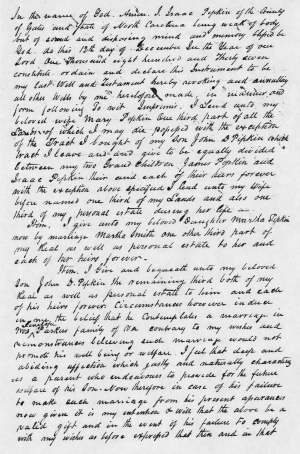 In the name of God. Amen. I Isaac Pipkin of the County
of Gates and State of North Carolina being weak of body
but of sound and disposing mind and memory blessed be
God. do this 13th day of December In the Year of our
Lord One Thousand eight hundred and Thirty seven
constitute ordain and declare this Instrument to be
my Last Will and Testament hereby revoking and annulling
all other Wills by me heretofore made, in manner and
form following To wit Imprimis. I Lend unto my
beloved wife Mary Pipkin One third part of all the
Lands of which I may die possessed with the exception
of the Tract I bought of my Son John D Pipkin which
tract I leave and give to be equally divided
between my two Grand Children James Pipkin and
Isaac Pipkin their and each of their heirs forever
with the exception above specified I lend unto my Wife
before named one third of my Lands and also one
third of my personal estate during her life —
Item. I give unto my beloved Daughter Martha Pipkin
now by marriage Martha Smith one other third part of
my Real as well as personal estate to her and
each of her heirs forever.
Item. I Give and bequeath unto my beloved
Son John D. Pipkin the remaining third both of my
Real as well as personal estate to him and each
of his heirs forever Circumstances however induce
in me the belief that he Contemplates a marriage in
Parker family of Va contrary to my wishes and
remonstrances believing such marriage would not
promote his well being or welfare. I feel that deep and
abiding affection which justly and naturally characterizes
as a parent who endeavours to provide for the future
welfare of his Son Now therefore in case of his failure
to make such marriage from his present appearances
now given it is my intention & will that the above be a
valid gift and in the event of his failure to comply
with my wishes as before expressed that then and in that